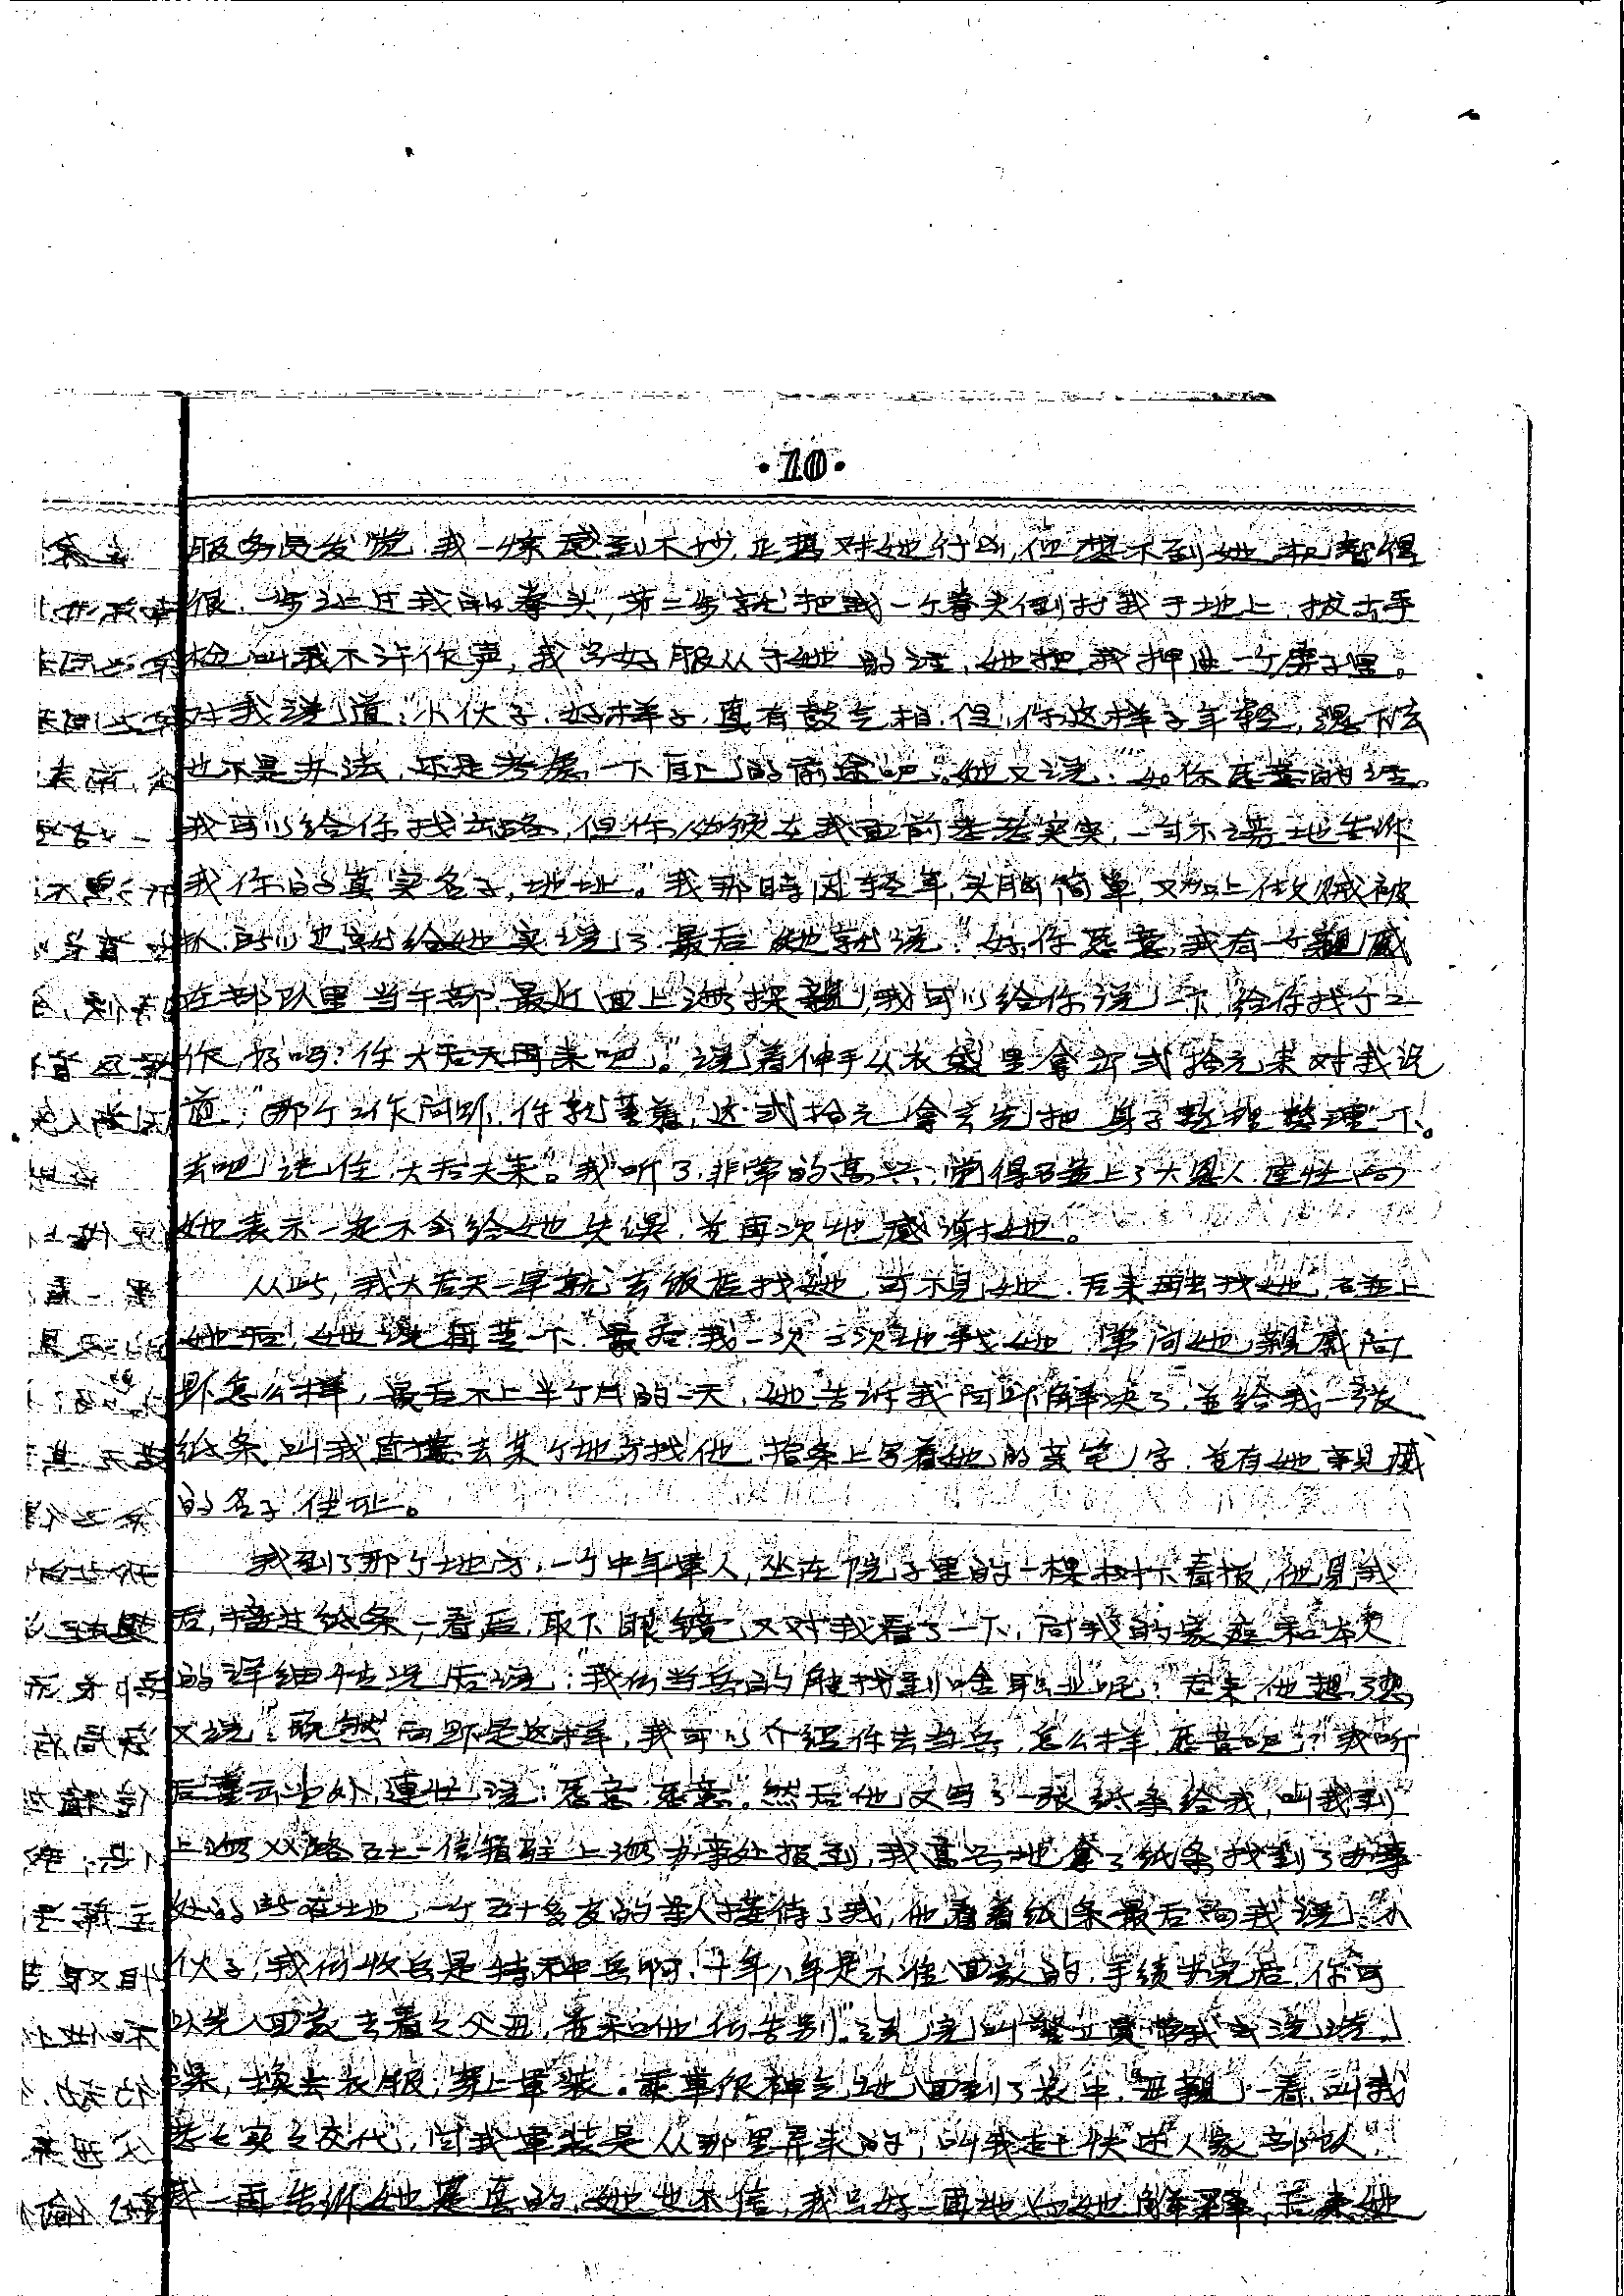 ·10·
服务员发觉,我一惊感到不妙,正想对她行凶,但想不到她机智得
很,一步让过我的拳头,第二步就把我一个拳头倒打我于地上,拔出手
枪叫我不许作声,我只好服从于她的话,她把我押进一个房子里。
对我说道:“小伙子,好样子,真有鼓气相,但,你这样子年轻,混下去
也不是办法,还是考虑一下自己的前途吧。”她又说:“如你愿意的话。
我可以给你找出路,但你必须在我面前老老实实,一句不漏地告诉
我你的真实名子,地址。”我那時因轻年,头脑简单,又加上做贼被
抓,所以也就给她实说了,最后她就说:“好,你愿意,我有一个親戚
在部队里当干部,最近回上海探親,我可以给你说一下,给你找个工
作,好吗?你大后天再来吧。”说着伸手从衣袋里拿出弍拾元来对我说
道:“那个工作问题,你就等着,这弍拾元拿去先把身子整理整理一下。
去吧,记住,大后天来。”我听了,非常的高兴,觉得碰上了大恩人,向
她表示一定不会给她失误,並再次地感谢她。
从此,我大后天一早就去饭店找她,可不见她,后来再去找她,碰上
她后,她说再等一下,最后我一次二次地找她,常问她親戚问
题怎么样,最后不上半个月的一天,她告诉我问题解决了,並给我一张
纸条,叫我直接去某个地方找他,指条上写着她的亲笔字,並有她親戚
的名子,住址。
我到了那个地方,一个中年軍人,坐在院子里的一棵树下看报,他見我
后,接过纸条,一看后,取下眼镜又对我看了一下,问我的家庭和本人
的详细情况后说:“我们当兵的能找到啥职业呢?”后来他想了想
又说:“既然问题是这样,我可以介绍你去当兵,怎么样,愿意吧?”我听
后喜出望外,連忙说:“愿意,愿意”。然后他又写了一张纸条给我,叫我到
上海XX路五七一信箱驻上海办事处报到,我高兴地拿了纸条找到了办事
处的所在地,一个五十多岁的軍人接待了我,他看着纸条最后向我说:“小
伙子,我们收兵是特种兵啊,十年八年是不准回家的,手续办完后,你可
以先回家去看看父母,並和他们告别。”说完叫警卫员带我去洗洗
澡,换去衣服,穿上軍装。乘車很神气地回到了家中,母親一看,叫我
老老实实交代,问我軍装是从那里弄来的,叫我赶快送人家部队,
我一再告诉她是真的,她也不信,我只好一再地向她解释,后来她